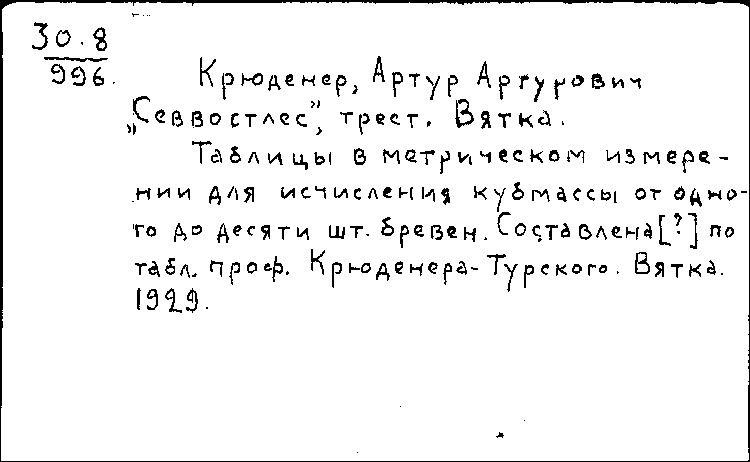 30.8
996.
Крюденер, Артур Артурович
„Севвостлес”, трест. Вятка.
Таблицы в метрическом измере-
нии для исчисления кубмассы от одно-
го до десяти шт. бревен. Составлена[?] по
табл. проф. Крюденера-Турского. Вятка.
1929.